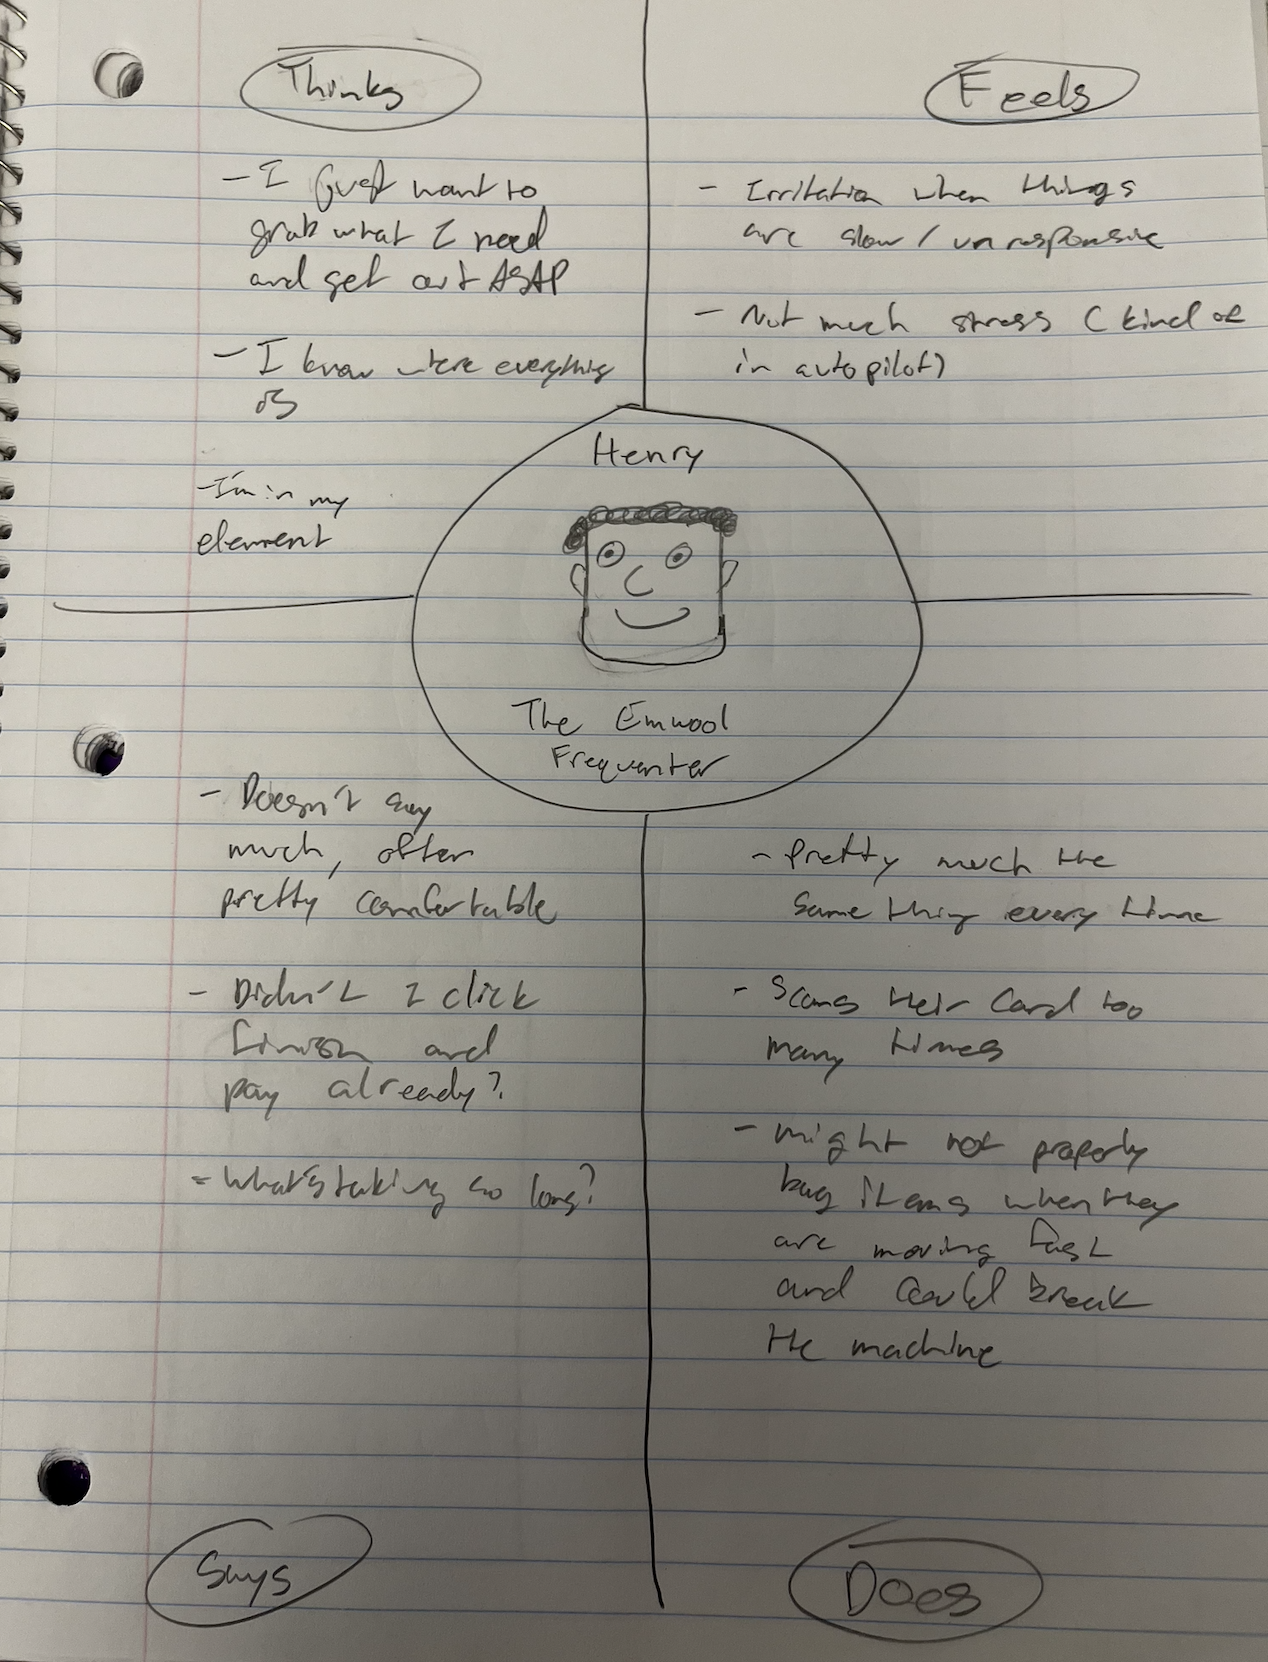 Thinks
- I just want to
grab what I need
and get out ASAP
- I know where everything
is
- I'm in my
element
Feels
- Irritation when things
are slow / unresponsive
- Not much stress (kind of
in autopilot)
Henry
The Emwool
Frequenter
- Doesn't say
much, often
pretty comfortable
- Didn't I click
finish and
pay already?
- What's taking so long?
Says
- Pretty much the
same thing every time
- Scans their card too
many times
- might not properly
bag items when they
are moving fast
and could break
the machine
Does